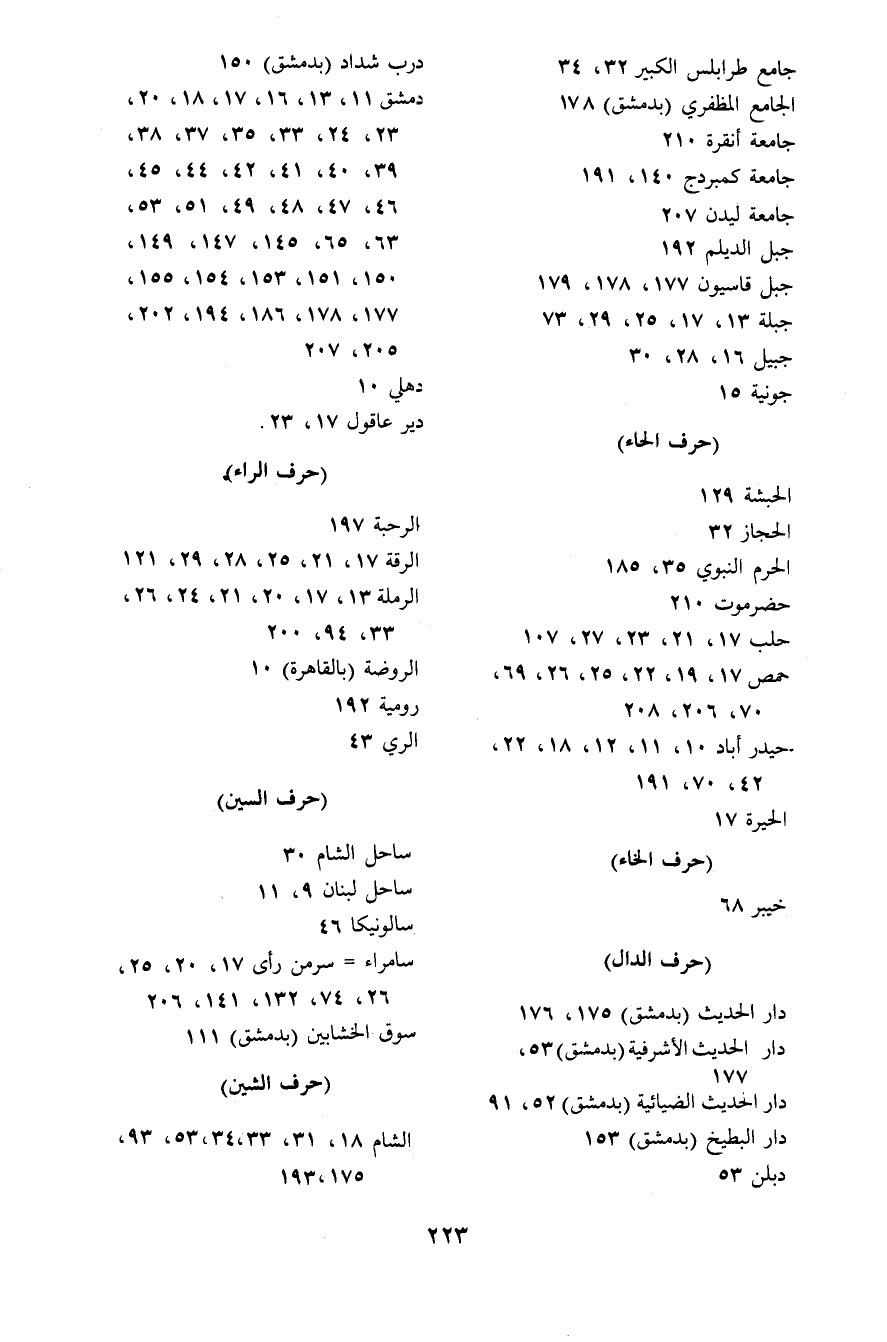 جامع طرابلس الكبير ٣٢، ٣٤
الجامع المظفري (بدمشق) ١٧٨
جامعة أنقرة ٢١٠
جامعة كمبردج ١٤٠، ١٩١
جامعة ليدن ٢٠٧
جبل الديلم ١٩٢
جبل قاسيون ١٧٧، ١٧٨، ١٧٩
جبلة ١٣، ١٧، ٢٥، ٢٩، ٧٣
جبيل ١٦، ٢٨، ٣٠
جونية ١٥
(حرف الحاء)
الحبشة ١٢٩
الحجاز ٣٢
الحرم النبوي ٣٥، ١٨٥
حضرموت ٢١٠
حلب ١٧، ٢١، ٢٣، ٢٧، ١٠٧
حمص ١٧، ١٩، ٢٢، ٢٥، ٢٦، ٦٩،
٧٠، ٢٠٦، ٢٠٨
حيدر أباد ١٠، ١١، ١٢، ١٨، ٢٢،
٤٢، ٧٠، ١٩١
الحيرة ١٧
(حرف الخاء)
خيبر ٦٨
(حرف الدال)
دار الحديث (بدمشق) ١٧٥، ١٧٦
دار الحديث الأشرفية (بدمشق) ٥٣،
١٧٧
دار الحديث الضيائية (بدمشق) ٥٢، ٩١
دار البطيخ (بدمشق) ١٥٣
دبلن ٥٣
درب شداد (بدمشق) ١٥٠
دمشق ١١، ١٣، ١٦، ١٧، ١٨، ٢٠،
٢٣، ٢٤، ٣٣، ٣٥، ٣٧، ٣٨،
٣٩، ٤٠، ٤١، ٤٢، ٤٤، ٤٥،
٤٦، ٤٧، ٤٨، ٤٩، ٥١، ٥٣،
٦٣، ٦٥، ١٤٥، ١٤٧، ١٤٩،
١٥٠، ١٥١، ١٥٣، ١٥٤، ١٥٥،
١٧٧، ١٧٨، ١٨٦، ١٩٤، ٢٠٢،
٢٠٥، ٢٠٧
دهلي ١٠
دير عاقول ١٧، ٢٣.
(حرف الراء)
الرحبة ١٩٧
الرقة ١٧، ٢١، ٢٥، ٢٨، ٢٩، ١٢١
الرملة ١٣، ١٧، ٢٠، ٢١، ٢٤، ٢٦،
٣٣، ٩٤، ٢٠٠
الروضة (بالقاهرة) ١٠
رومية ١٩٢
الري ٤٣
(حرف السين)
ساحل الشام ٣٠
ساحل لبنان ٩، ١١
سالونيكا ٤٦
سامراء = سرمن رأى ١٧، ٢٠، ٢٥،
٢٦، ٧٤، ١٣٢، ١٤١، ٢٠٦
سوق الخشابين (بدمشق) ١١١
(حرف الشين)
الشام ١٨، ٣١، ٣٣،٣٤،٥٣، ٩٣،
١٧٥،١٩٣
٢٢٣